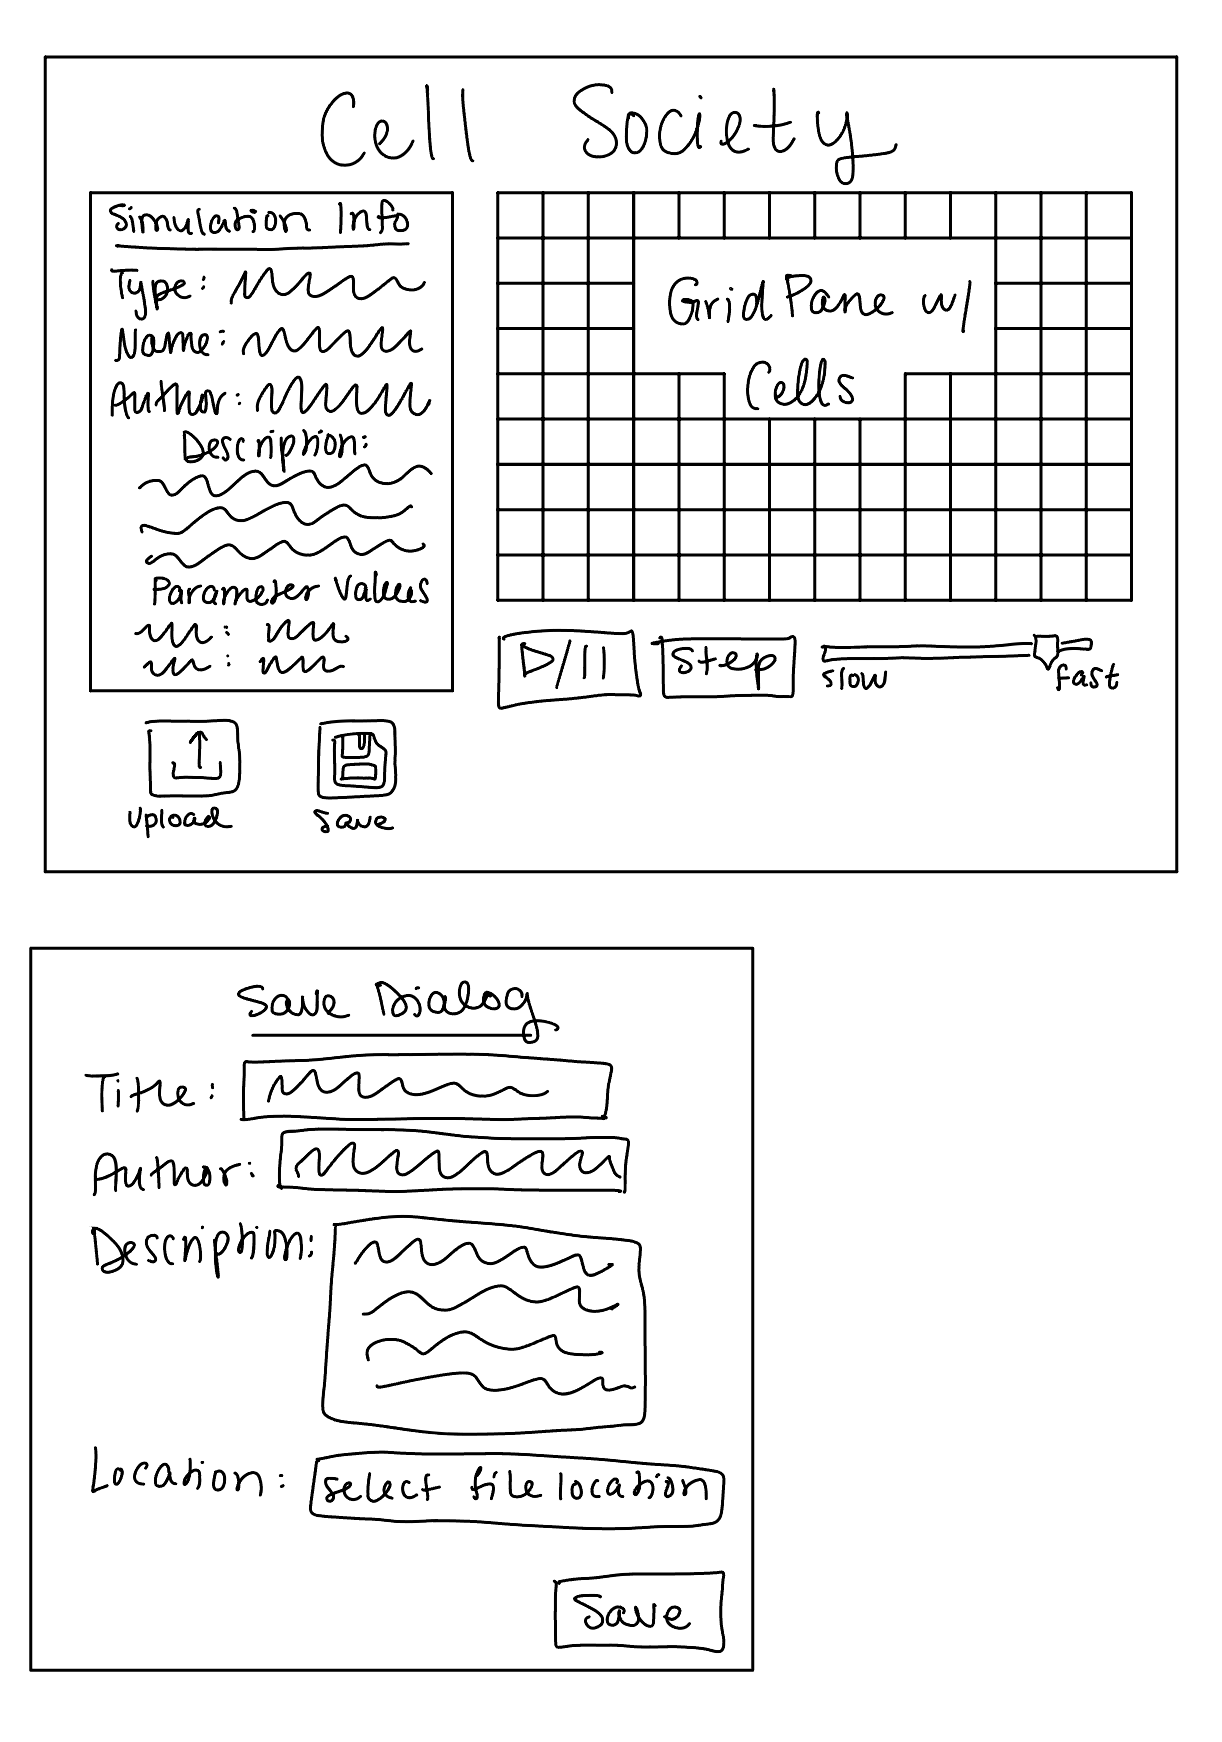 Cell Society
Simulation Info
Type:
Name:
Author:
Description:
Parameter Values
:
:
GridPane w/
Cells
Step
slow
fast
Upload
Save
Save Dialog
Title:
Author:
Description:
Location: select file location
Save